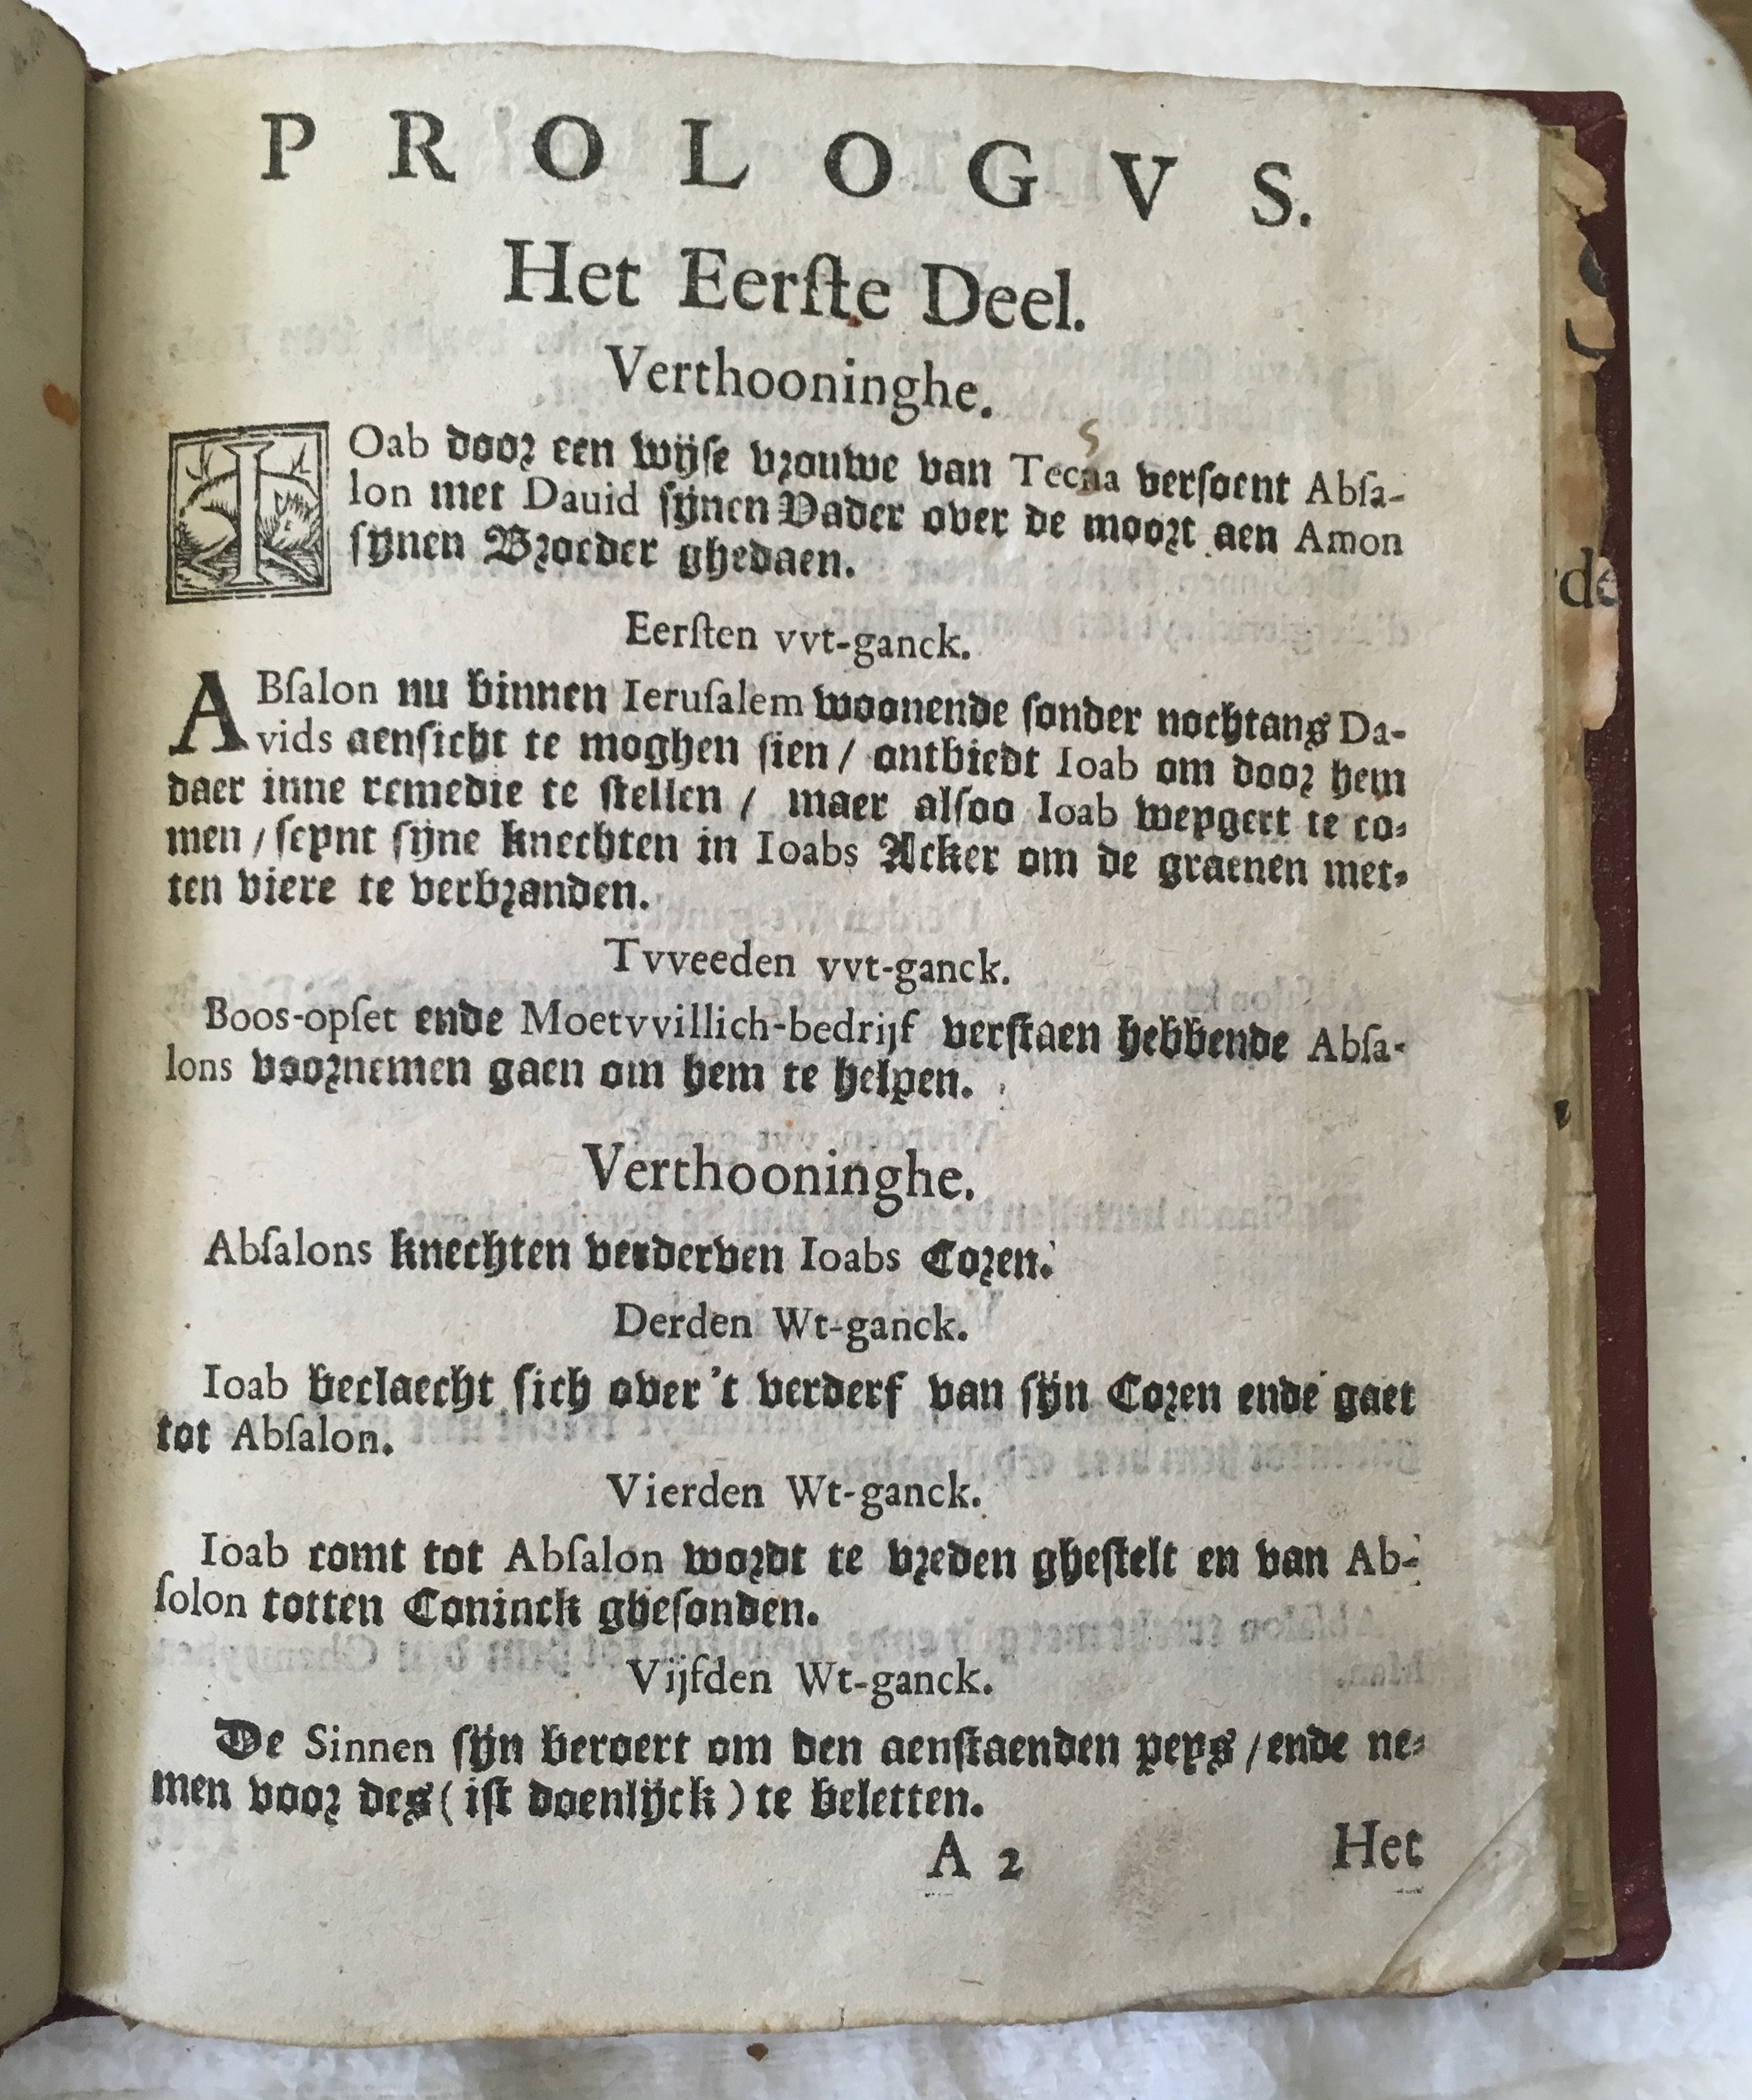 PROLOGVS.
Het Eerſte Deel.
Verthooninghe.
IOab door een wijſe vrouwe van Tecua verſoent Abſa-
lon met Dauid ſijnen Vader over de moort aen Amon
ſynen Broeder ghedaen.
Eerſten vvt-ganck.
ABſalon nu binnen Ieruſalem woonende ſonder nochtans Da-
vids aenſicht te moghen ſien / ontbiedt Ioab om door hem
daer inne remedie te ſtellen / maer alſoo Ioab weygert te co-
men / ſeynt ſijne knechten in Ioabs Acker om de graenen met-
ten viere te verbranden.
Tvveeden vvt-ganck.
Boos-opſet ende Moetvvillich-bedrijf verſtaen hebbende Abſa-
lons voornemen gaen om hem te helpen.
Verthooninghe.
Abſalons knechten verderven Ioabs Coren.
Derden Wt-ganck.
Ioab beclaecht ſich over 't verderf van ſijn Coren ende gaet
tot Abſalon.
Vierden Wt-ganck.
Ioab comt tot Abſalon wordt te vreden gheſtelt en van Ab-
ſolon totten Coninck gheſonden.
Vijfden Wt-ganck.
De Sinnen ſijn beroert om den aenſtaenden peys / ende ne-
men voor des ( iſt doenlijck ) te beletten.
A 2 Het